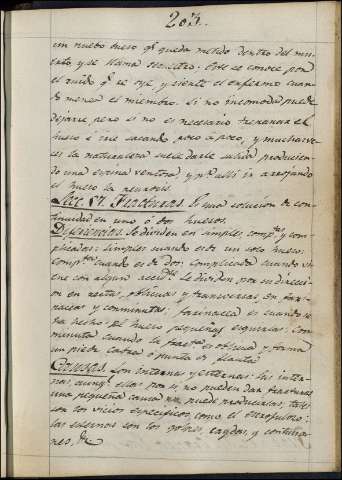 203.
un nuebo hueso qe queda metido dentro del mu-
erto, y se llama secuestro. Este se conoce por
el ruido qe se oye, y siente el enfermo cuan-
do menea el miembro. si no incomoda puede
dejarse pero si no es necesario trepanar el
hueso é irle sacando poco á poco, y muchas ve-
ces la naturaleza suele darle salida producien-
do una espina ventosa, y pr alli ir arrojando
el hueso la necrosis.
Lec. 57. Fracturas. Es una solucion de con-
tinuidad en uno ó dos huesos.
Diferencias. Se dividen en simples comptas y com-
plicadas: simples cuando es de un solo hueso:
comptas cuando es de dos: complicada cuando vi-
ene con algun accidte. Se dividen, por su direcci-
on en rectas, oblicuas y transversas, en fari-
naceas y conminutas; farinacea es cuando se
ha hecho el hueso pequeñas esquirlas: con-
minuta cuando la fractra es oblicua y forma
un pico de flauta.
Causas. Son internas y externas: las inter-
nas, aunqe ellas por si no pueden dar fracturas
una pequeña causa puede producirlas, tales
son los vicios especificos, como el escrofuloso:
las esternas son los golpes, caydas, y contusio-
nes, &c